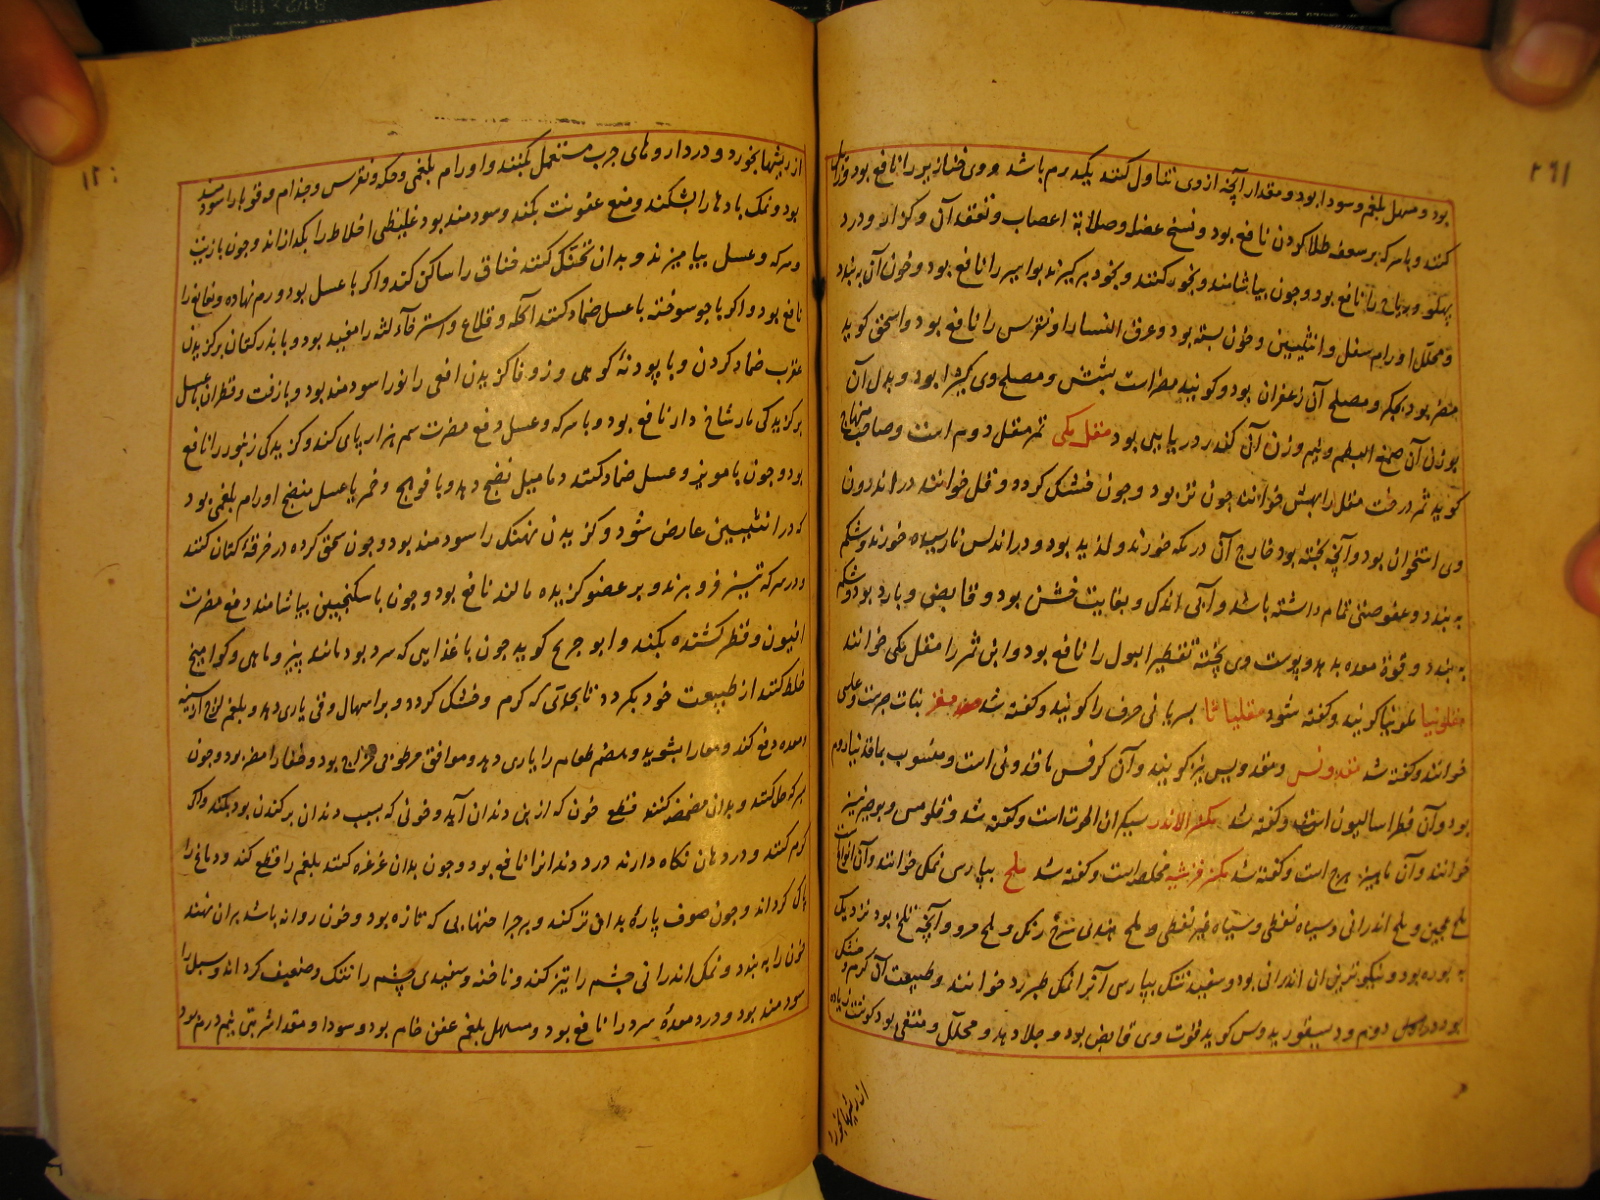 ٢٦١
بود و مسهل بلغم و سودا بود و مقدار آنچه از وی تناول کنند یکدرم باشد و وی خنازیر را نافع بود و زایل
کنند و با سرکه بر سعفه طلا کردن نافع بود و فسخ عضل و صلابة اعصاب و تعقد آن و کزاز و درد
پهلو و ریاح را نافع بود و چون بیاشامند و بخور کنند و بخود برگیرند بواسیر را نافع بود و خون آن به بندد
و محلل اورام سفل و انثیین و خون بسته بود و عرق النسا و نقرس را نافع بود و اسحق گوید
مضر بود بجگر و مصلح آن زعفران بود و گویند مضر است بشش و مصلح وی کتیرا بود و بدل آن
بوزن آن صمغ البطم و نیم وزن آن کندر دریایی بود مقل مکی ثمر مقل دوم است و صاحب منهاج
گوید ثمر درخت مقل را بهش خوانند چون تر بود و چون خشک کرده و قل خوانند در اندرون
وی استخوان بود و آنچه پخته بود خارج آن در مکه خورند و لذید بود و در اندلس نارسیده خورند و شکم
به بندد و عفوصتی تمام داشته باشد و آبی اندک و بغایت خشن بود و قابض و بارد بود و شکم
به بندد و قوة معده بدهد و پوست وی پخته تقطیر البول را نافع بود و این ثمر را مقل مکی خوانند
مقلونیا بلمونیا گویند و گفته شود مقلیاثا بسریانی حرف را گویند و گفته شد مغز نبات
خوانند و گفته شد مقدونس و مقدویس نیز گویند و آن کرفس ماقدونی است و منسوب بماقدنیا روم
بود و آن فطراسالیون است و گفته شد مکثر الاندر سیکران الحوت است و گفته شد و قلومس و بوصیر نیز
خوانند و آن ماهیزهرج است و گفته شد مکنر قرشیه مخلصه است و گفته شد ملح بپارسی نمک خوانند و آن انواع است
ملح عجین و ملح اندرانی و سیاه نفطی و سیاه غیر نفطی و ملح هندی سرخ رنگ و ملح مر و آنچه تلخ بود نزدیک
به بوره بود و نیکوترین آن اندرانی بود و سفید تنک بپارسی آنرا نمک طبرزد خوانند و طبیعت آن گرم و خشک
بود در دوم و دیسقوریدوس گوید قوت وی قابض بود و جلا دهد و محلل و منقی بود گوشت زیاده
از ریشها بخورد
از ریشها بخورد و در داروهای جرب مستعمل کنند و اورام بلغمی و حکه و نقرس و جذام و قوبا را سودمند
بود و نمک بادها را بشکند و منع عفونت بکند و سودمند بود غلیظی اخلاط را بگدازاند و چون با زیت
و سرکه و عسل بیامیزند و بدان تحنک کنند خناق را ساکن کند و اگر با عسل بود ورم نهاده و نغانغ را
نافع بود و اگر با جو سوخته با عسل ضماد کنند آکله و قلاع و استرخاء لثه را مفید بود و با بذر کتان بر گزیدن
عقرب ضماد کردن و با پودنه کوهی و زوفا گزیدن افعی را نورا سودمند بود و با زفت و قطران با عسل
بر گزیدگی مار شاخ دار نافع بود و با سرکه و عسل دفع مضرت سم هزار پای کند و گزیدگی زنبور را نافع
بود و چون با مویز و عسل ضماد کنند دمامیل نضج دهد و با فودنج و خمر یا عسل منضج اورام بلغمی بود
که در انثیین عارض شود و گزیدن نهنگ را سودمند بود و چون سحق کرده در خرقه کتان کنند
و در سرکه تیز فرو برند و بر عضو گزیده مالند نافع بود و چون با سکنجبین بیاشامند دفع مضرت
افیون و فطر کشنده بکند و ابو جریح گوید چون با غذایی که سرد بود مانند پنیر و ماهی و کوامیخ
خلط کنند از طبیعت خود بگردد تا بجدی که گرم و خشک گردد و بر اسهال و قی یاری دهد و بلغم لزج از سینه
و معده دفع کند و معا را بشوید و هضم طعام را یاری دهد و موافق مرطوبی مزاج بود و طلفا را مضر بود و چون
بسرکه حل کنند و بدان مضمضه کنند قطع خون که از بن دندان آید و خونی که بسبب دندان برکندن بود بکند و اگر
گرم کنند و در دهان نگاه دارند درد دندانرا نافع بود و چون بدان غرغره کنند بلغم را قطع کند و دماغ را
پاک گرداند و چون صوف پاره بدان تر کند و بر جراحتهایی که تازه بود و خون روانه باشد بران نهند
خون را به بندد و نمک اندرانی چشم را تیز کند و ناخنه و سفیدی چشم را تنک و ضعیف گرداند و سبل را
سودمند بود و درد معده سرد را نافع بود و مسهل بلغم عفن خام بود و سودا و مقدار شربتی نیم درم بود